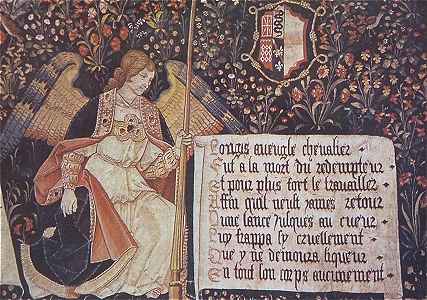 Longis aueugle cheualier
Fut a la mort du redempteur
Et pour plus fort le trauailler
Affin quil neust iames retour
Dune lance iusques au cueur
Luy frappa sy cruellement
Que y ne demoura liqueur
En tout son corps aucunement